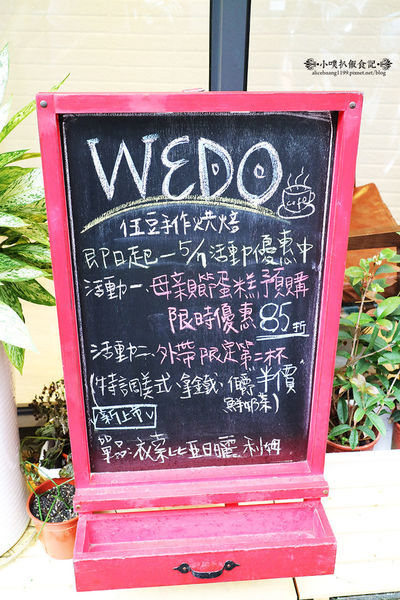 小噗趴飯食記
alicehuang1199.pixnet.net/blog
WEDO
Cafe
伍豆手作烘焙
即日起－5/1 活動優惠中
活動一.母親節蛋糕預購
限時優惠 85折
活動二.外帶限定第二杯
(特調美式.拿鐵.
半價
鮮奶茶)
新上市
單品:衣索比亞日曬 利姆